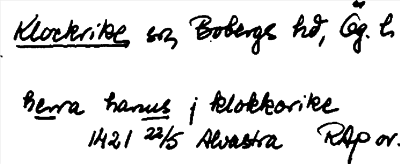 Klockrike sn, Bobergs hd, Ög. l.
herra hanus j klokkorike
1421 22/5 Alvastra RAp or.